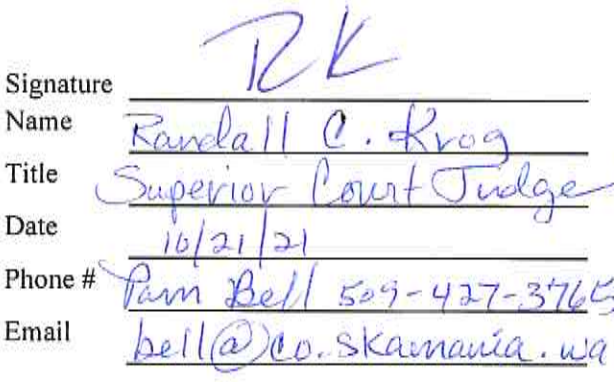 Signature RK
Name Randall C. Krog
Title Superior Court Judge
Date 10/21/21
Phone # Pam Bell 509-427-3765
Email bell@co.skamania.wa